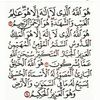 هُوَ اللَّهُ الَّذِي لَا إِلَٰهَ إِلَّا هُوَ
هُوَ اللَّهُ الَّذِي لَا إِلَٰهَ إِلَّا هُوَ الْمَلِكُ
الْقُدُّوسُ السَّلَامُ الْمُؤْمِنُ الْمُهَيْمِنُ
الْعَزِيزُ الْجَبَّارُ الْمُتَكَبِّرُ سُبْحَانَ
اللَّهِ عَمَّا يُشْرِكُونَ هُوَ اللَّهُ الْخَالِقُ
الْبَارِئُ الْمُصَوِّرُ لَهُ الْأَسْمَاءُ الْحُسْنَىٰ
يُسَبِّحُ لَهُ مَا فِي السَّمَاوَاتِ وَالْأَرْضِ
وَهُوَ الْعَزِيزُ الْحَكِيمُ